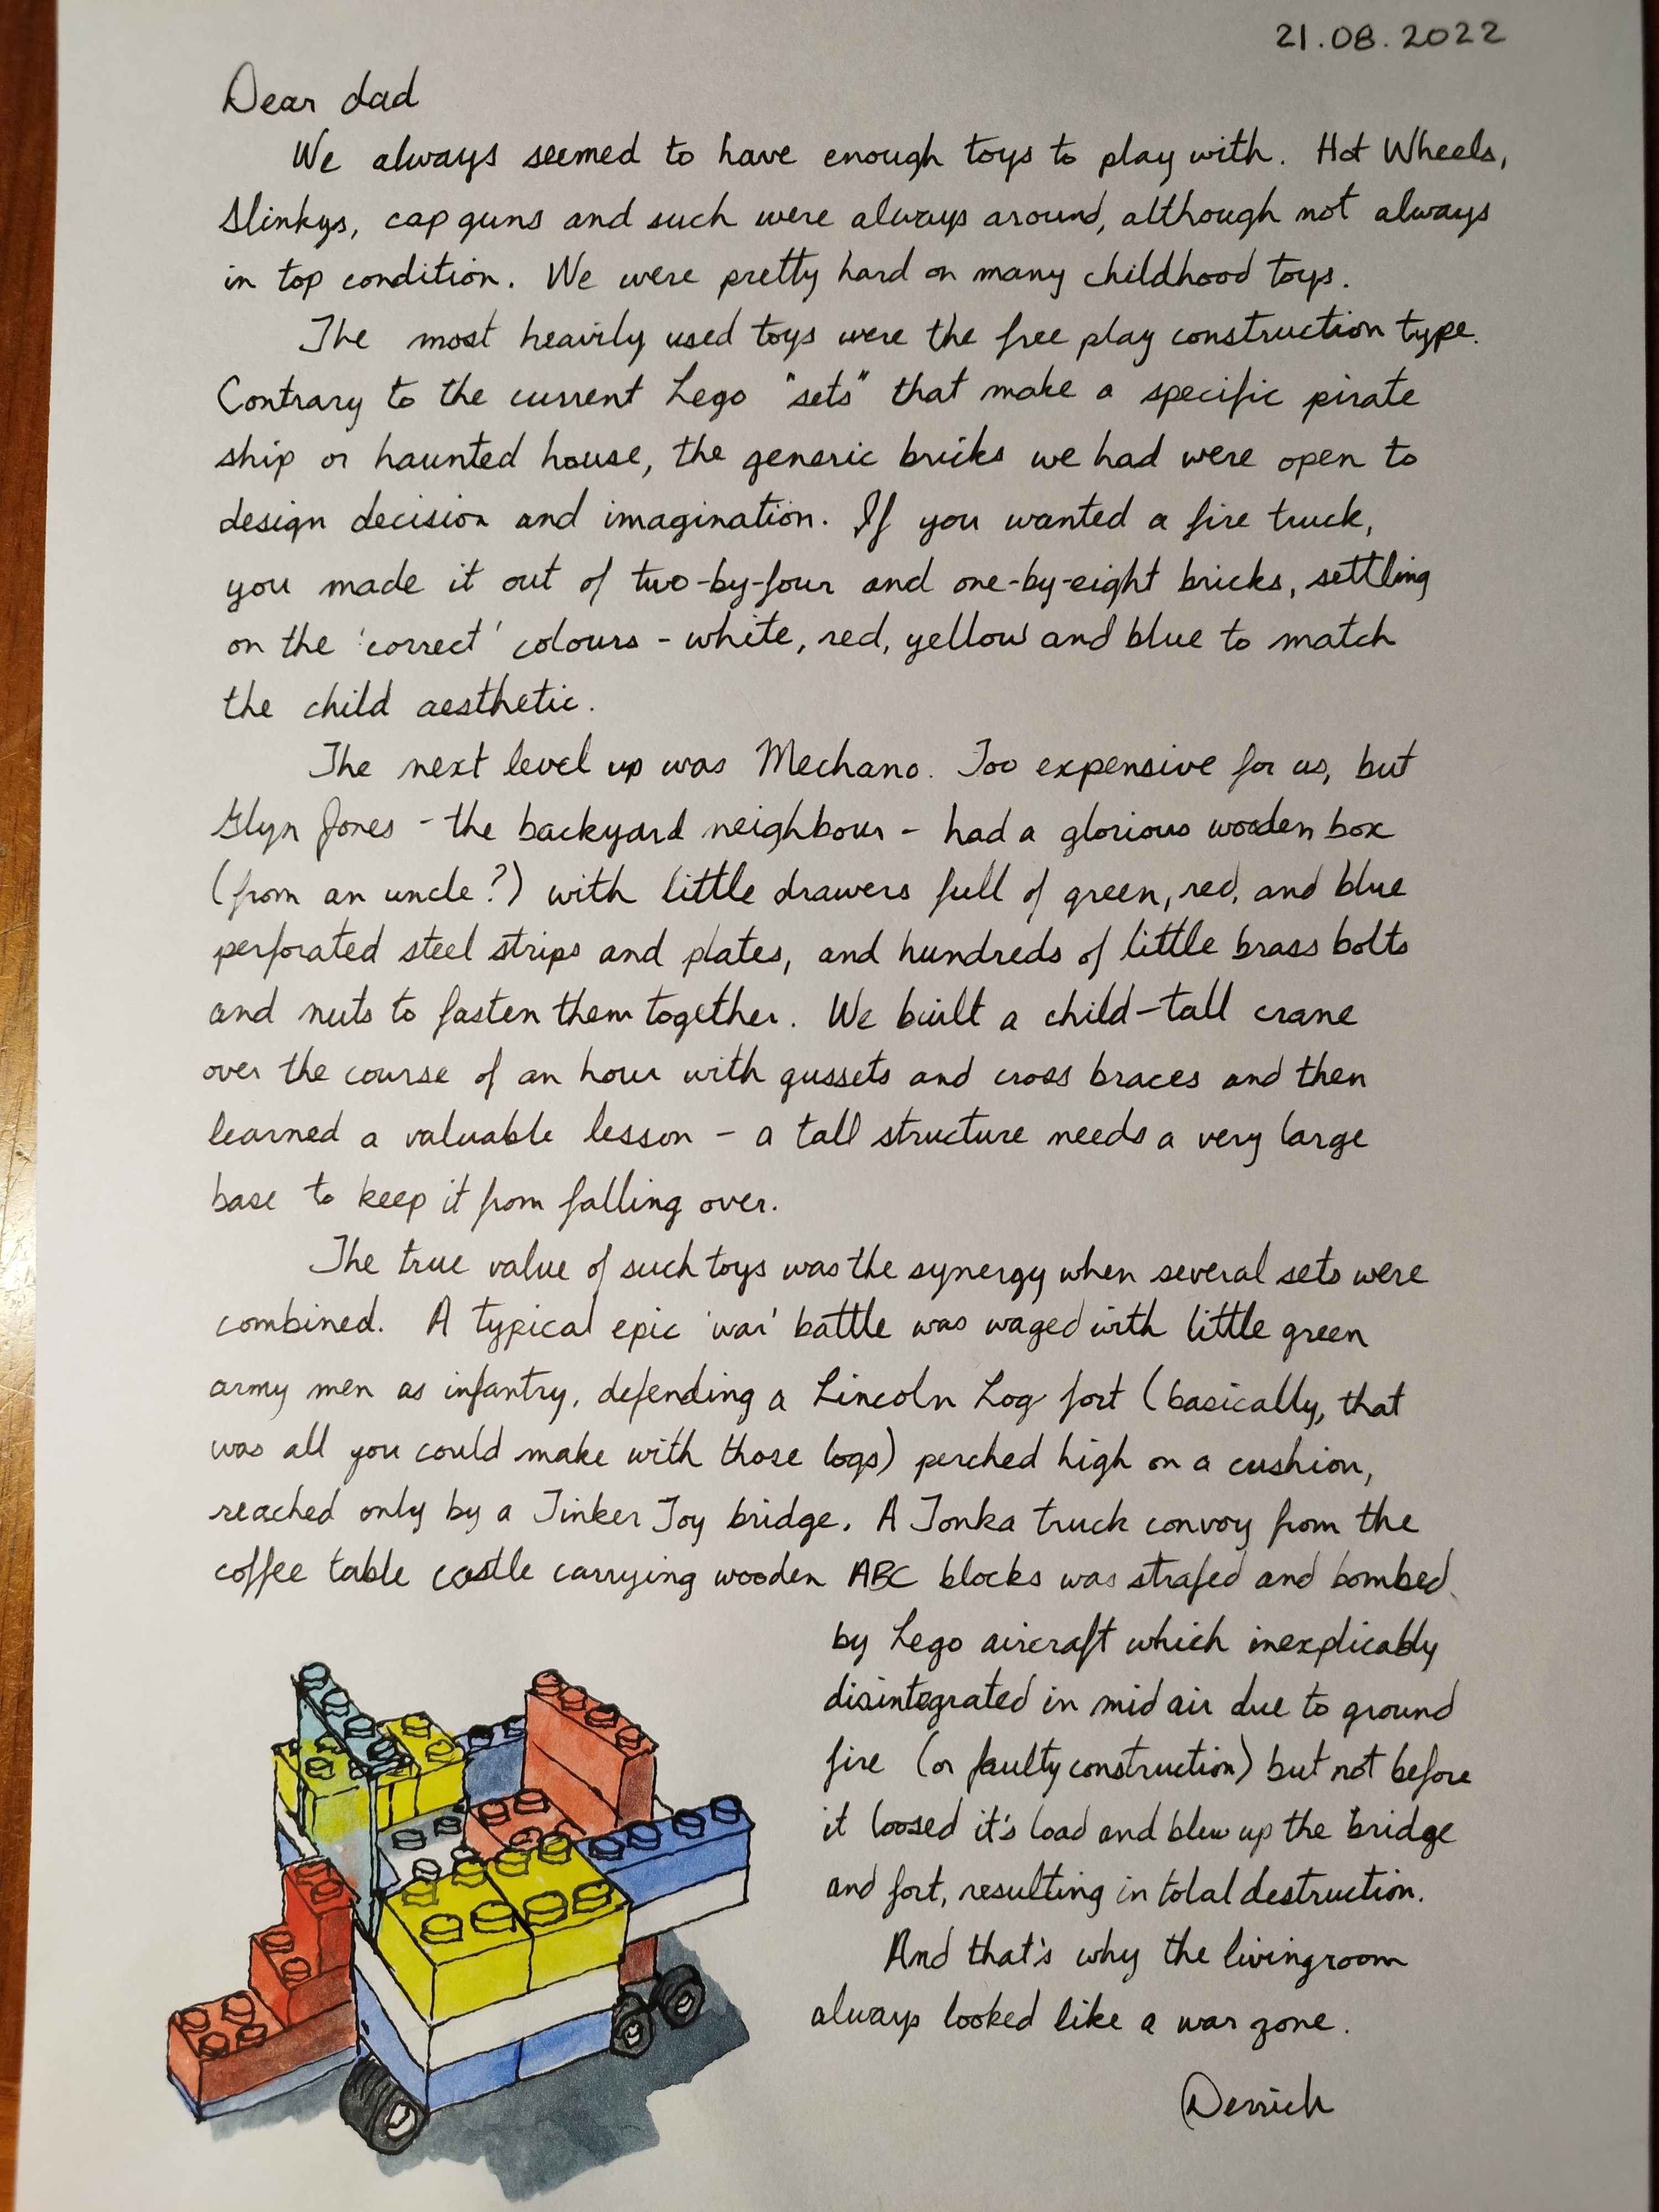 21.08.2022
Dear dad
We always seemed to have enough toys to play with. Hot Wheels,
Slinkys, cap guns and such were always around, although not always
in top condition. We were pretty hard on many childhood toys.
The most heavily used toys were the free play construction type.
Contrary to the current Lego "sets" that make a specific pirate
ship or haunted house, the generic bricks we had were open to
design decision and imagination. If you wanted a fire truck,
you made it out of two-by-four and one-by-eight bricks, settling
on the 'correct' colours - white, red, yellow and blue to match
the child aesthetic.
The next level up was Mechano. Too expensive for us, but
Glyn Jones - the backyard neighbour - had a glorious wooden box
(from an uncle?) with little drawers full of green, red, and blue
perforated steel strips and plates, and hundreds of little brass bolts
and nuts to fasten them together. We built a child-tall crane
over the course of an hour with gussets and cross braces and then
learned a valuable lesson - a tall structure needs a very large
base to keep it from falling over.
The true value of such toys was the synergy when several sets were
combined. A typical epic 'war' battle was waged with little green
army men as infantry, defending a Lincoln Log fort (basically, that
was all you could make with those logs) perched high on a cushion,
reached only by a Tinker Toy bridge. A Tonka truck convoy from the
coffee table castle carrying wooden ABC blocks was strafed and bombed
by Lego aircraft which inexplicably
disintegrated in mid air due to ground
fire (or faulty construction) but not before
it loosed it's load and blew up the bridge
and fort, resulting in total destruction.
And that's why the livingroom
always looked like a war zone.
Derrick